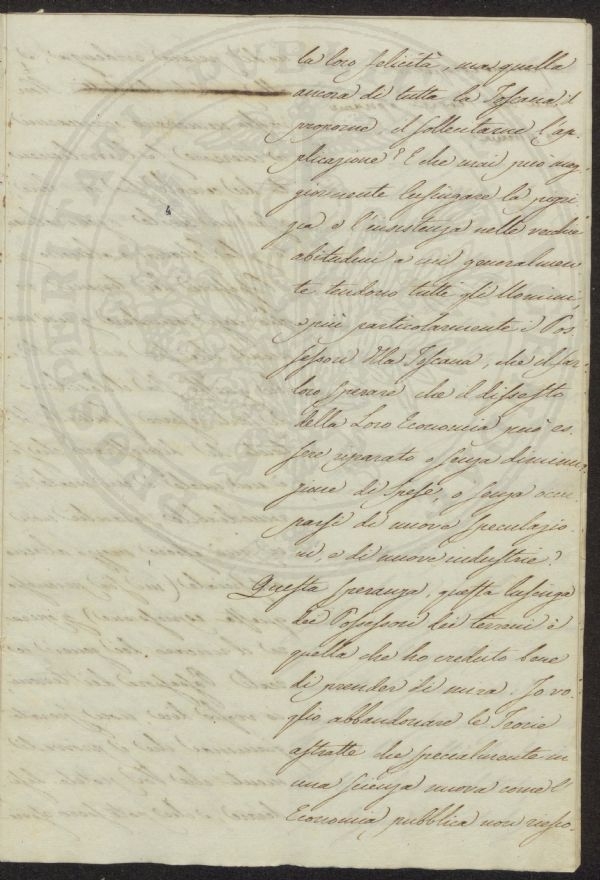 la loro felicità, ma quella
ancora di tutta la Toscana il
proporne, il sollecitarne l'ap-
plicazione? E che mai può mag-
giormente lusingare la pigri-
zia e l'insistenza nelle vecchie
abitudini a cui generalmen-
te tendono tutti gli Uomini,
e più particolarmente i Pos-
sessori della Toscana, che il far
loro sperare che il dissesto
della Loro Economia può es-
sere riparato o senza diminu-
zione di Spese, o senza occu-
parsi di nuove speculazio-
ni, e di nuove industrie?
Questa speranza, questa lusinga
dei Possessori dei terreni è
quella che ho creduto bene
di prender di mira. Io vo-
glio abbandonare le Teorie
astratte che specialmente in
una scienza nuova come l'
Economia pubblica non riesco-
4
PROSPERITATI